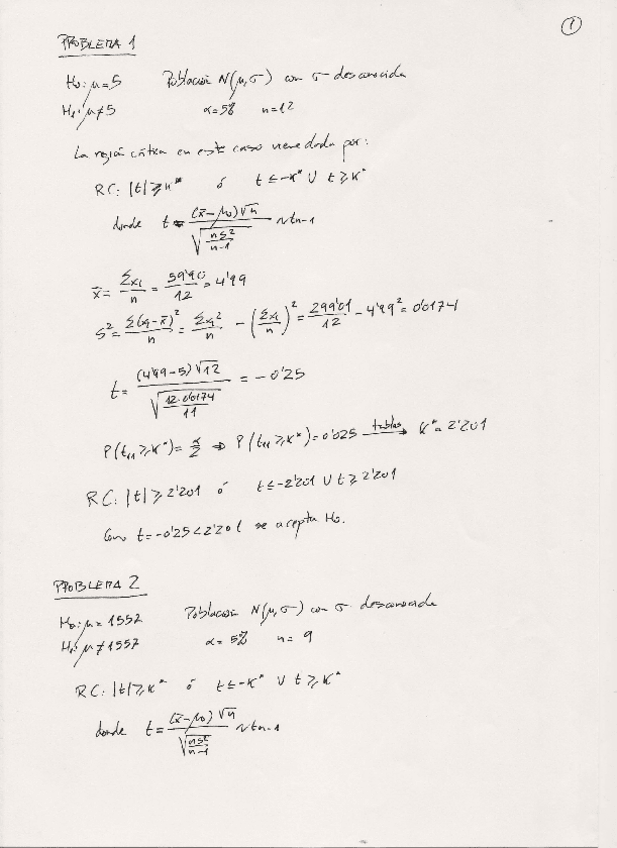 1
PROBLEMA 1
H₀: μ=5 Población N(μ,σ) con σ desconocida
H₁: μ≠5 α=5% n=12
La región crítica en este caso viene dada por:
RC: |t|⩾K* ó t≤-K* ∪ t⩾K*
donde t = (x̄-μ₀)√n / √(nS²/n-1) ~ tn-1
x̄ = Σxi/n = 59'90/12 = 4'99
S² = Σ(xi-x̄)²/n = Σxi²/n - (Σxi/n)² = 299'01/12 - 4'99² = 0'0174
t = (4'99-5)√12 / √(12·0'0174/11) = -0'25
P(t₁₁⩾K*) = α/2 ⇒ P(t₁₁⩾K*) = 0'025 tablas→ K* = 2'201
RC: |t|⩾2'201 ó t≤-2'201 ∪ t⩾2'201
Como t=-0'25<2'201 se acepta H₀.
PROBLEMA 2
H₀: μ=1552 Población N(μ,σ) con σ desconocida
H₁: μ≠1557 α=5% n=9
RC: |t|⩾K* ó t≤-K* ∪ t⩾K*
donde t = (x̄-μ₀)√n / √(nS²/n-1) ~ tn-1